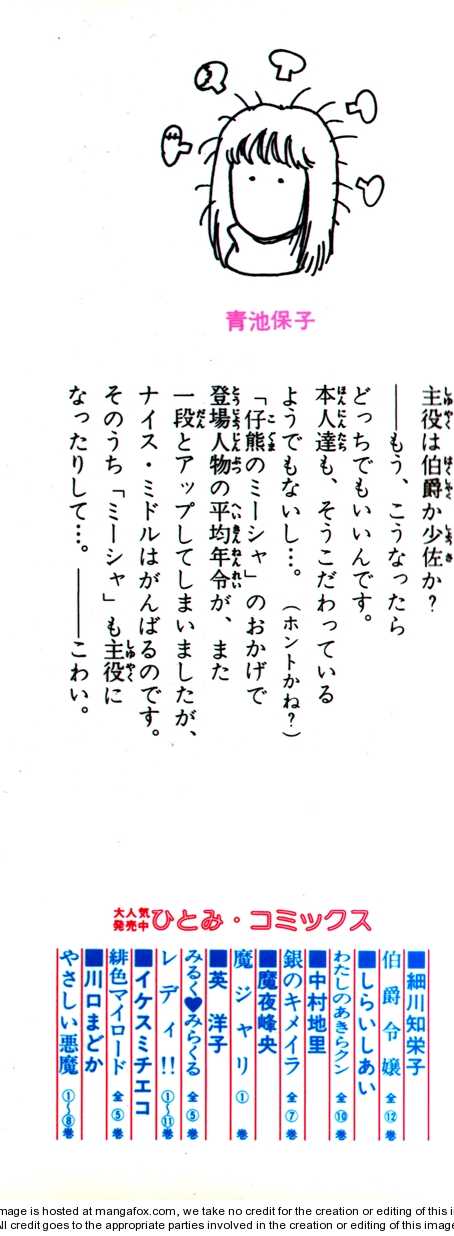 青池保子
主役は伯爵か少佐か?
――もう、こうなったら
どっちでもいいんです。
本人達も、そうこだわっている
ようでもないし…。(ホントかね?)
「仔熊のミーシャ」のおかげで
登場人物の平均年令が、また
一段とアップしてしまいましたが、
ナイス・ミドルはがんばるのです。
そのうち「ミーシャ」も主役に
なったりして…。――こわい。
大人気発売中 ひとみ・コミックス
■細川知栄子
伯爵令嬢 全⑫巻
■しらいしあい
わたしのあきらクン 全⑩巻
■中村地里
銀のキメイラ 全⑦巻
■魔夜峰央
魔ジャリ ①巻
■英 洋子
みるく♥みらくる 全⑤巻
レディ!! ①〜⑪巻
■イケスミチエコ
緋色マイロード 全⑤巻
■川口まどか
やさしい悪魔 ①〜⑧巻
mage is hosted at mangafox.com, we take no credit for the creation or editing of this i
All credit goes to the appropriate parties involved in the creation or editing of this image